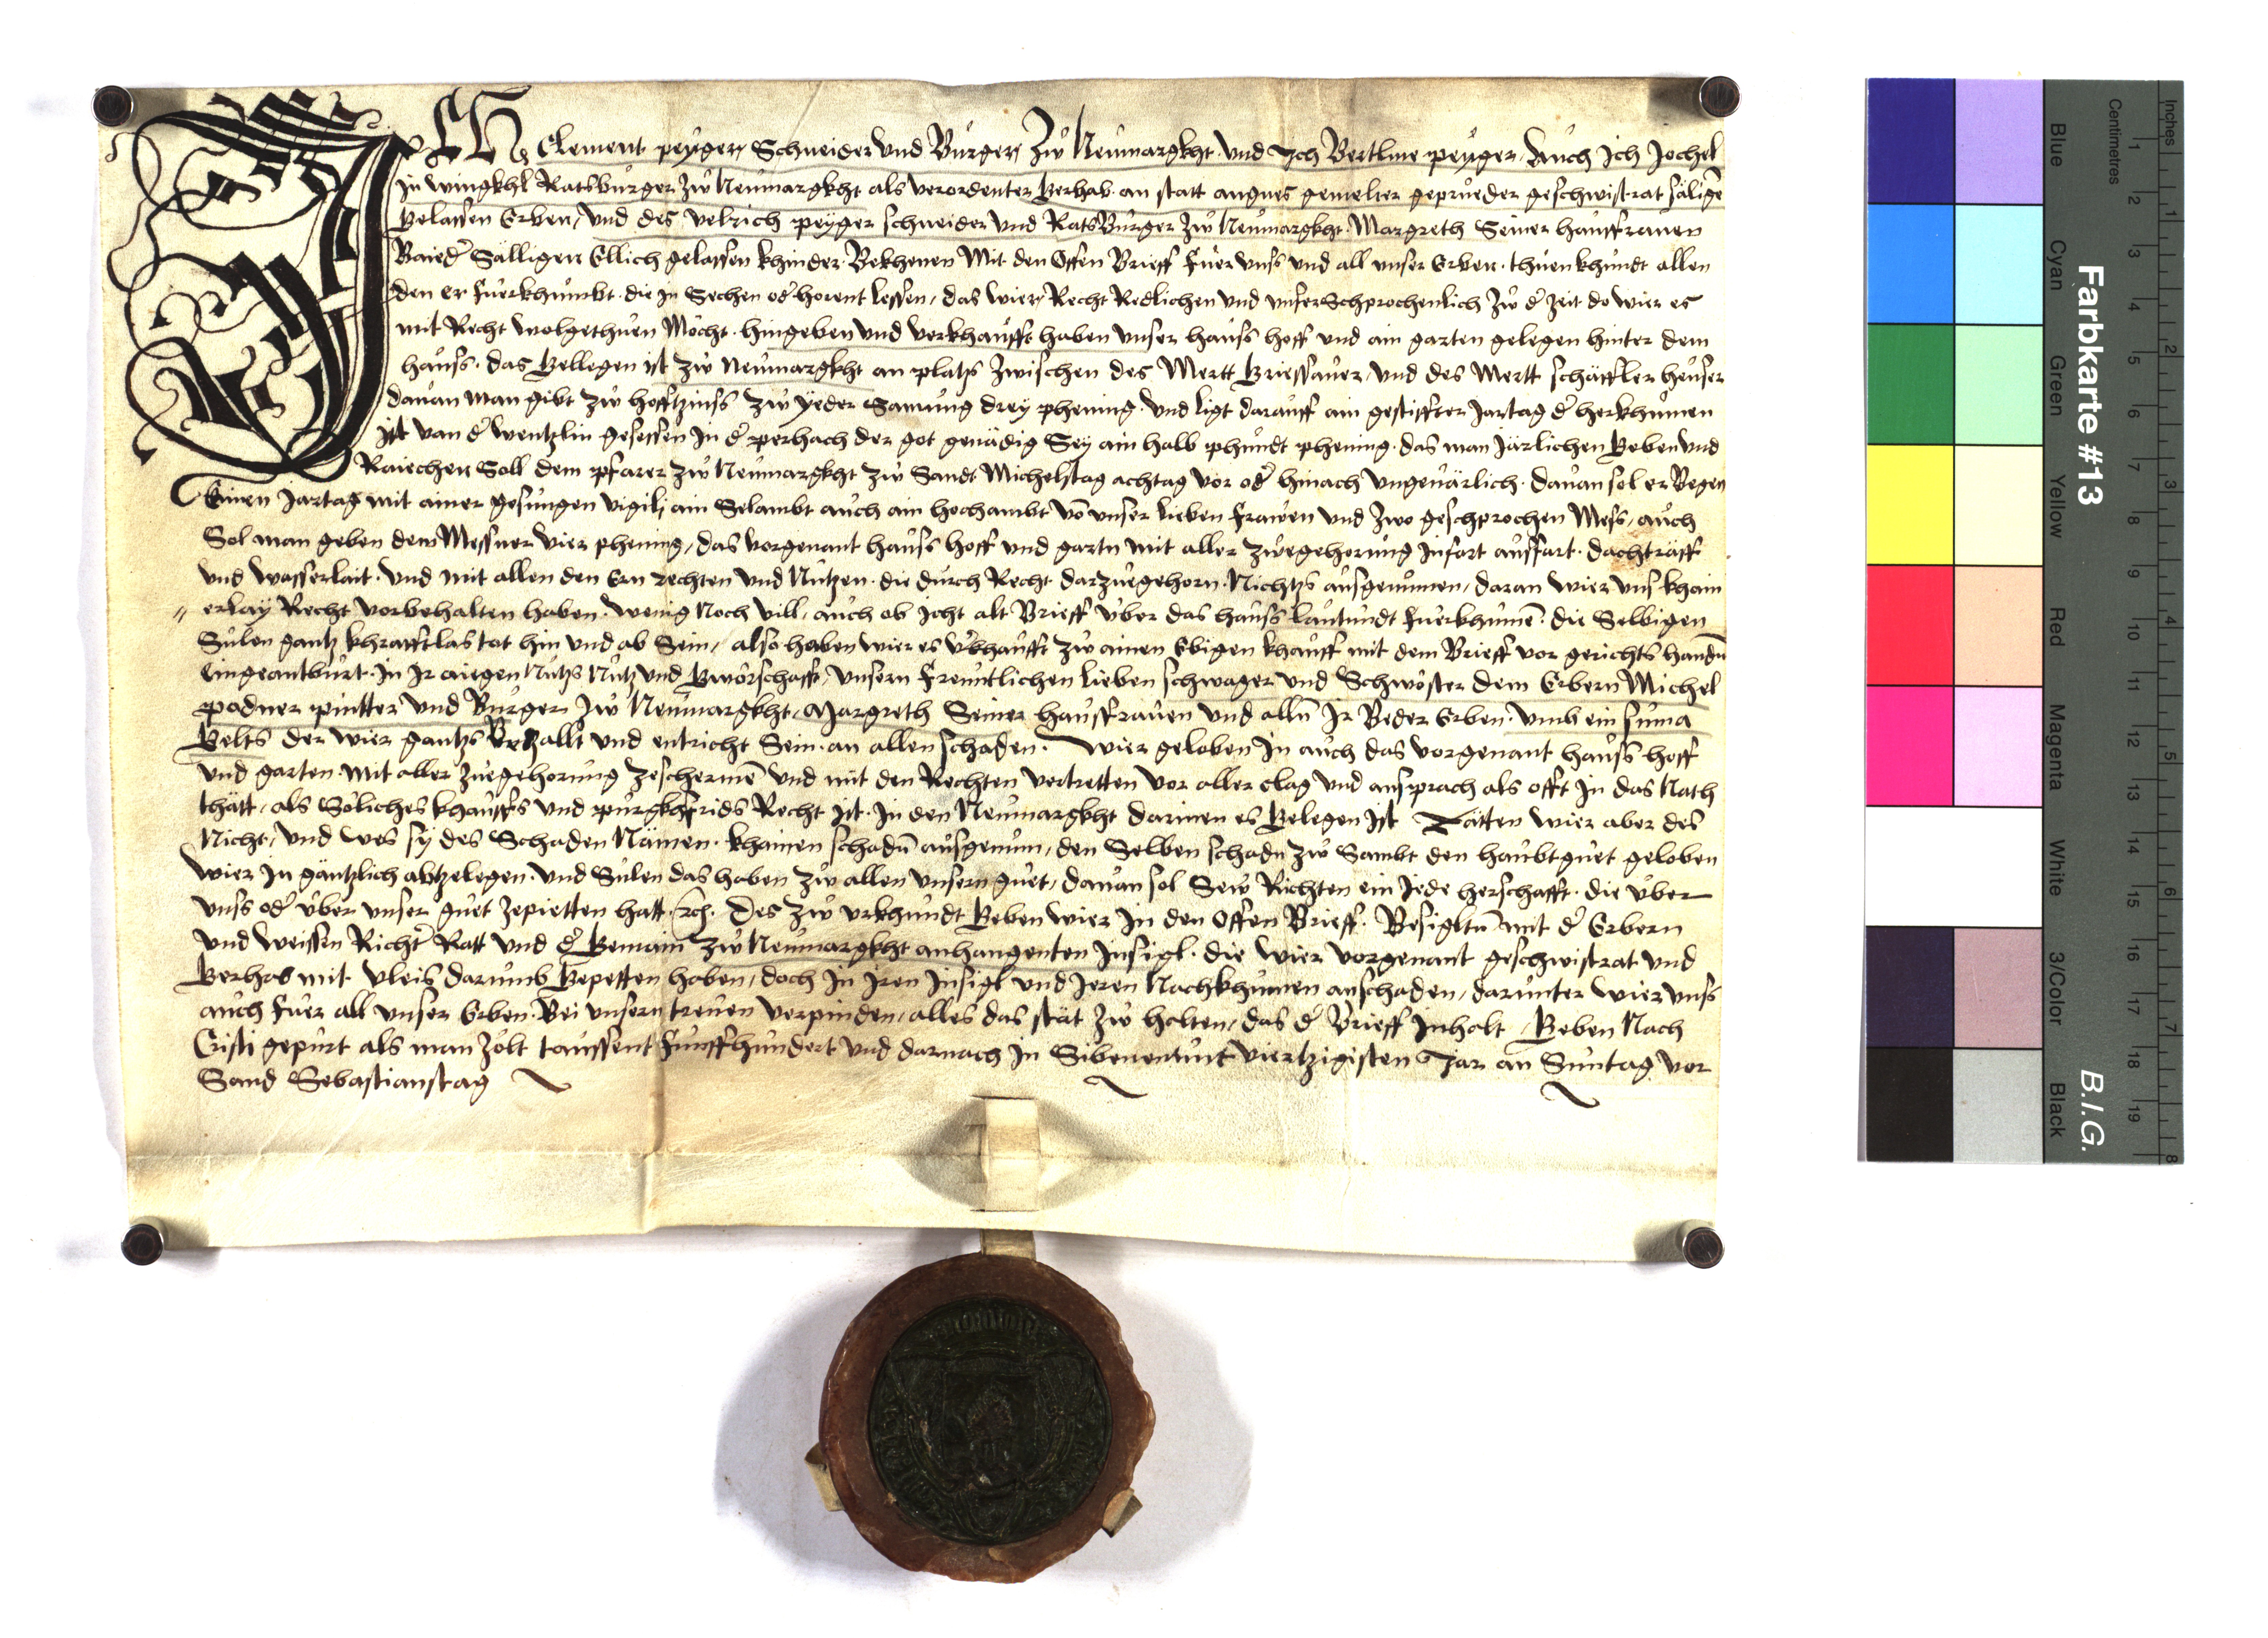 ICH Clement peyger Schneider und Burger Zw Neumargkht und Ich Bertlme peyger Auch Ich Jochel
in wingkhl Ratsburger zw Neumargkht als verordenter Gerhab an statt angnes gemelter geprueder geschwistrat säligē
gelassen Erben, und des Velrich peyger schneider und Ratsburger zw Neumargkht Margreth Seiner hausfrauen
Baied Sälligen Ellich gelassen khinder Bekhenen Mit den Offen Brieff fuer unss und all unser Erben thuen khundt allen
den er fuerkhumbt die in Sechen od horent lessen, das wier Recht Redlichen und unferSchprochenlich zw d zeit do wier es
mit Recht wolgethuen Mocht hingeben und verkhaufft haben unser hauss hoff und ain garten gelegen hinter dem
hauss das gellegen ist zw Neumargkht an platz zwischen des Mertt Griessauer und des Mertt schäffler heuser
dauan man gibt zw hofftzinss zw yeder Samung drey phening und ligt darauff ain gestiffter Jartag d herkhumen
ist van d wentzlin gesessen in d perhach der got genädig Sey ain halb phundt phening das man järlichen Geben und
Raichen Soll dem pfarer zw Neumargkht zw Sandt Michelstag achtag vor od hinach ungeuärlich dauan sol er Begen
Einen Jartag mit ainer gesungen vigilj ain Selambt auch ain hochambt vō unser lieben frawen und zwo geschprochen Mess, auch
Sol man geben dem Messner vier phening, das vorgenant hauss hoff und gartn mit aller zuegehorung infart aussfart dachträff
und wasserlait und mit allen den Ern rechten und Nutzen die durch Recht darzuegehorn Nichtzs ausgenumen, daran wier uns khain
erlay Recht vorbehalten haben wenig Noch vill, auch ob icht alt Brieff uber das hauss lautundt fuerkhumē die Selbigen
Sulen gantz khrafftlas tot hin und ab Sein, also haben wier es v'khaufft zw ainen Ebigen khauff mit dem Brieff vor gerichts handn
Eingeantburt in Ir aiegen Nutzs Nutz und Gwörschafft, unsern freuntlichen lieben schwager und Schwöster dem Erbern Michel
podner pintter und Burger zw Neumargkht, Margreth Seiner hausfrauen und alln Ir Beder Erben umb ein suma
Gelts der wier gantzs Betzallt und entricht Sein an allen schaden. Wier geloben In auch das vorgenant hauss hoff
und garten mit aller zuegehorung zeschermē und mit den Rechten vertretten vor aller clag und ansprach als offt in das Nath
thätt, als Soliches khauffs und purgkhfrids Recht ist in den Neumargkht darinen es Gelegen ist Tätten wier aber des
Nicht, und wes sy des Schaden Nämen khainen schadn ausgenum, den Selben schadn zw Sambt den haubtguet geloben
wier in gäntzlich abtzelegen und Sulen das haben zw allen unsern guet, dauan sol Sew Richten ein Jede herschafft die uber
unss od uber unser guet zepietten hatt. Des zw urkhundt Geben wier in den offen Brieff Besigltn mit d Erbern
und weissen Richt Ratt und d Gemain zw Neumargkht anhangenten Insigl die wier vorgenant geschwistrat und
Gerhab mit vleis darumb Gepetten haben, doch in iren insigl und Ieren Nachkhumen anschaden, darunter wier unss
auch fuer all unser Erben Bei unsern treuen verpinden, alles das stät zw halten, das d Brieff Inhalt, Geben Nach
Cristi gepurt als man zolt taussent funffhundert und darnach in Sibenentunt viertzigisten Jar an Suntag vor
Sand Sebastianstag
Farbkarte #13
B.I.G.
Inches
Centimetres
Blue
Cyan
Green
Yellow
Red
Magenta
White
3/Color
Black
1 2 3 4 5 6 7 8 9 10 11 12 13 14 15 16 17 18 19
1 2 3 4 5 6 7 8